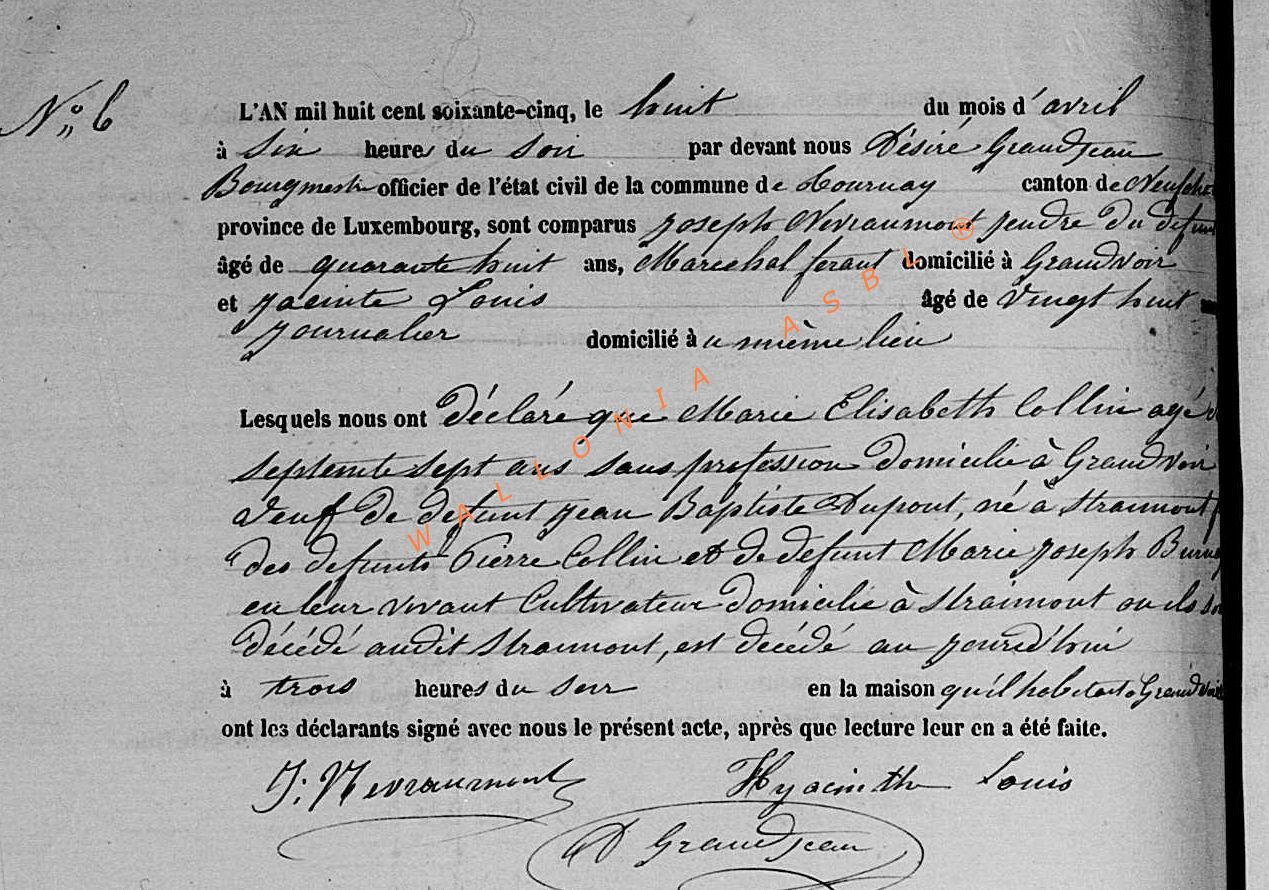 N° 6
L'AN mil huit cent soixante-cinq, le huit du mois d'avril
à six heures du soir par devant nous Désiré Grandjean
Bourgmestre officier de l'état civil de la commune de Tournay canton de Neufchâ
province de Luxembourg, sont comparus Joseph Nevraumont gendre du défunt
âgé de quarante huit ans, Marechal ferant domicilié à Grandvoir
et Jacinte Louis âgé de vingt huit
journalier domicilié à u même lieu
Lesquels nous ont déclaré que Marie Elisabeth Collin agé
septente sept ans sans profession domicilié à Grandvoir
veuf de defunt Jean Baptiste Dupont, né à Straimont
des defunts Pierre Collin et de defunt Marie Joseph
en leur vivant Cultivateur domicilié à Straimont ou ils
décédé audit Straimont, est décédé au jourd'hui
à trois heures du soir en la maison qu'il habitait à Grandvoir
ont les déclarants signé avec nous le présent acte, après que lecture leur en a été faite.
J: Nevraumont Hyacinthe Louis
D Grandjean
WALLONIA ASBL ®